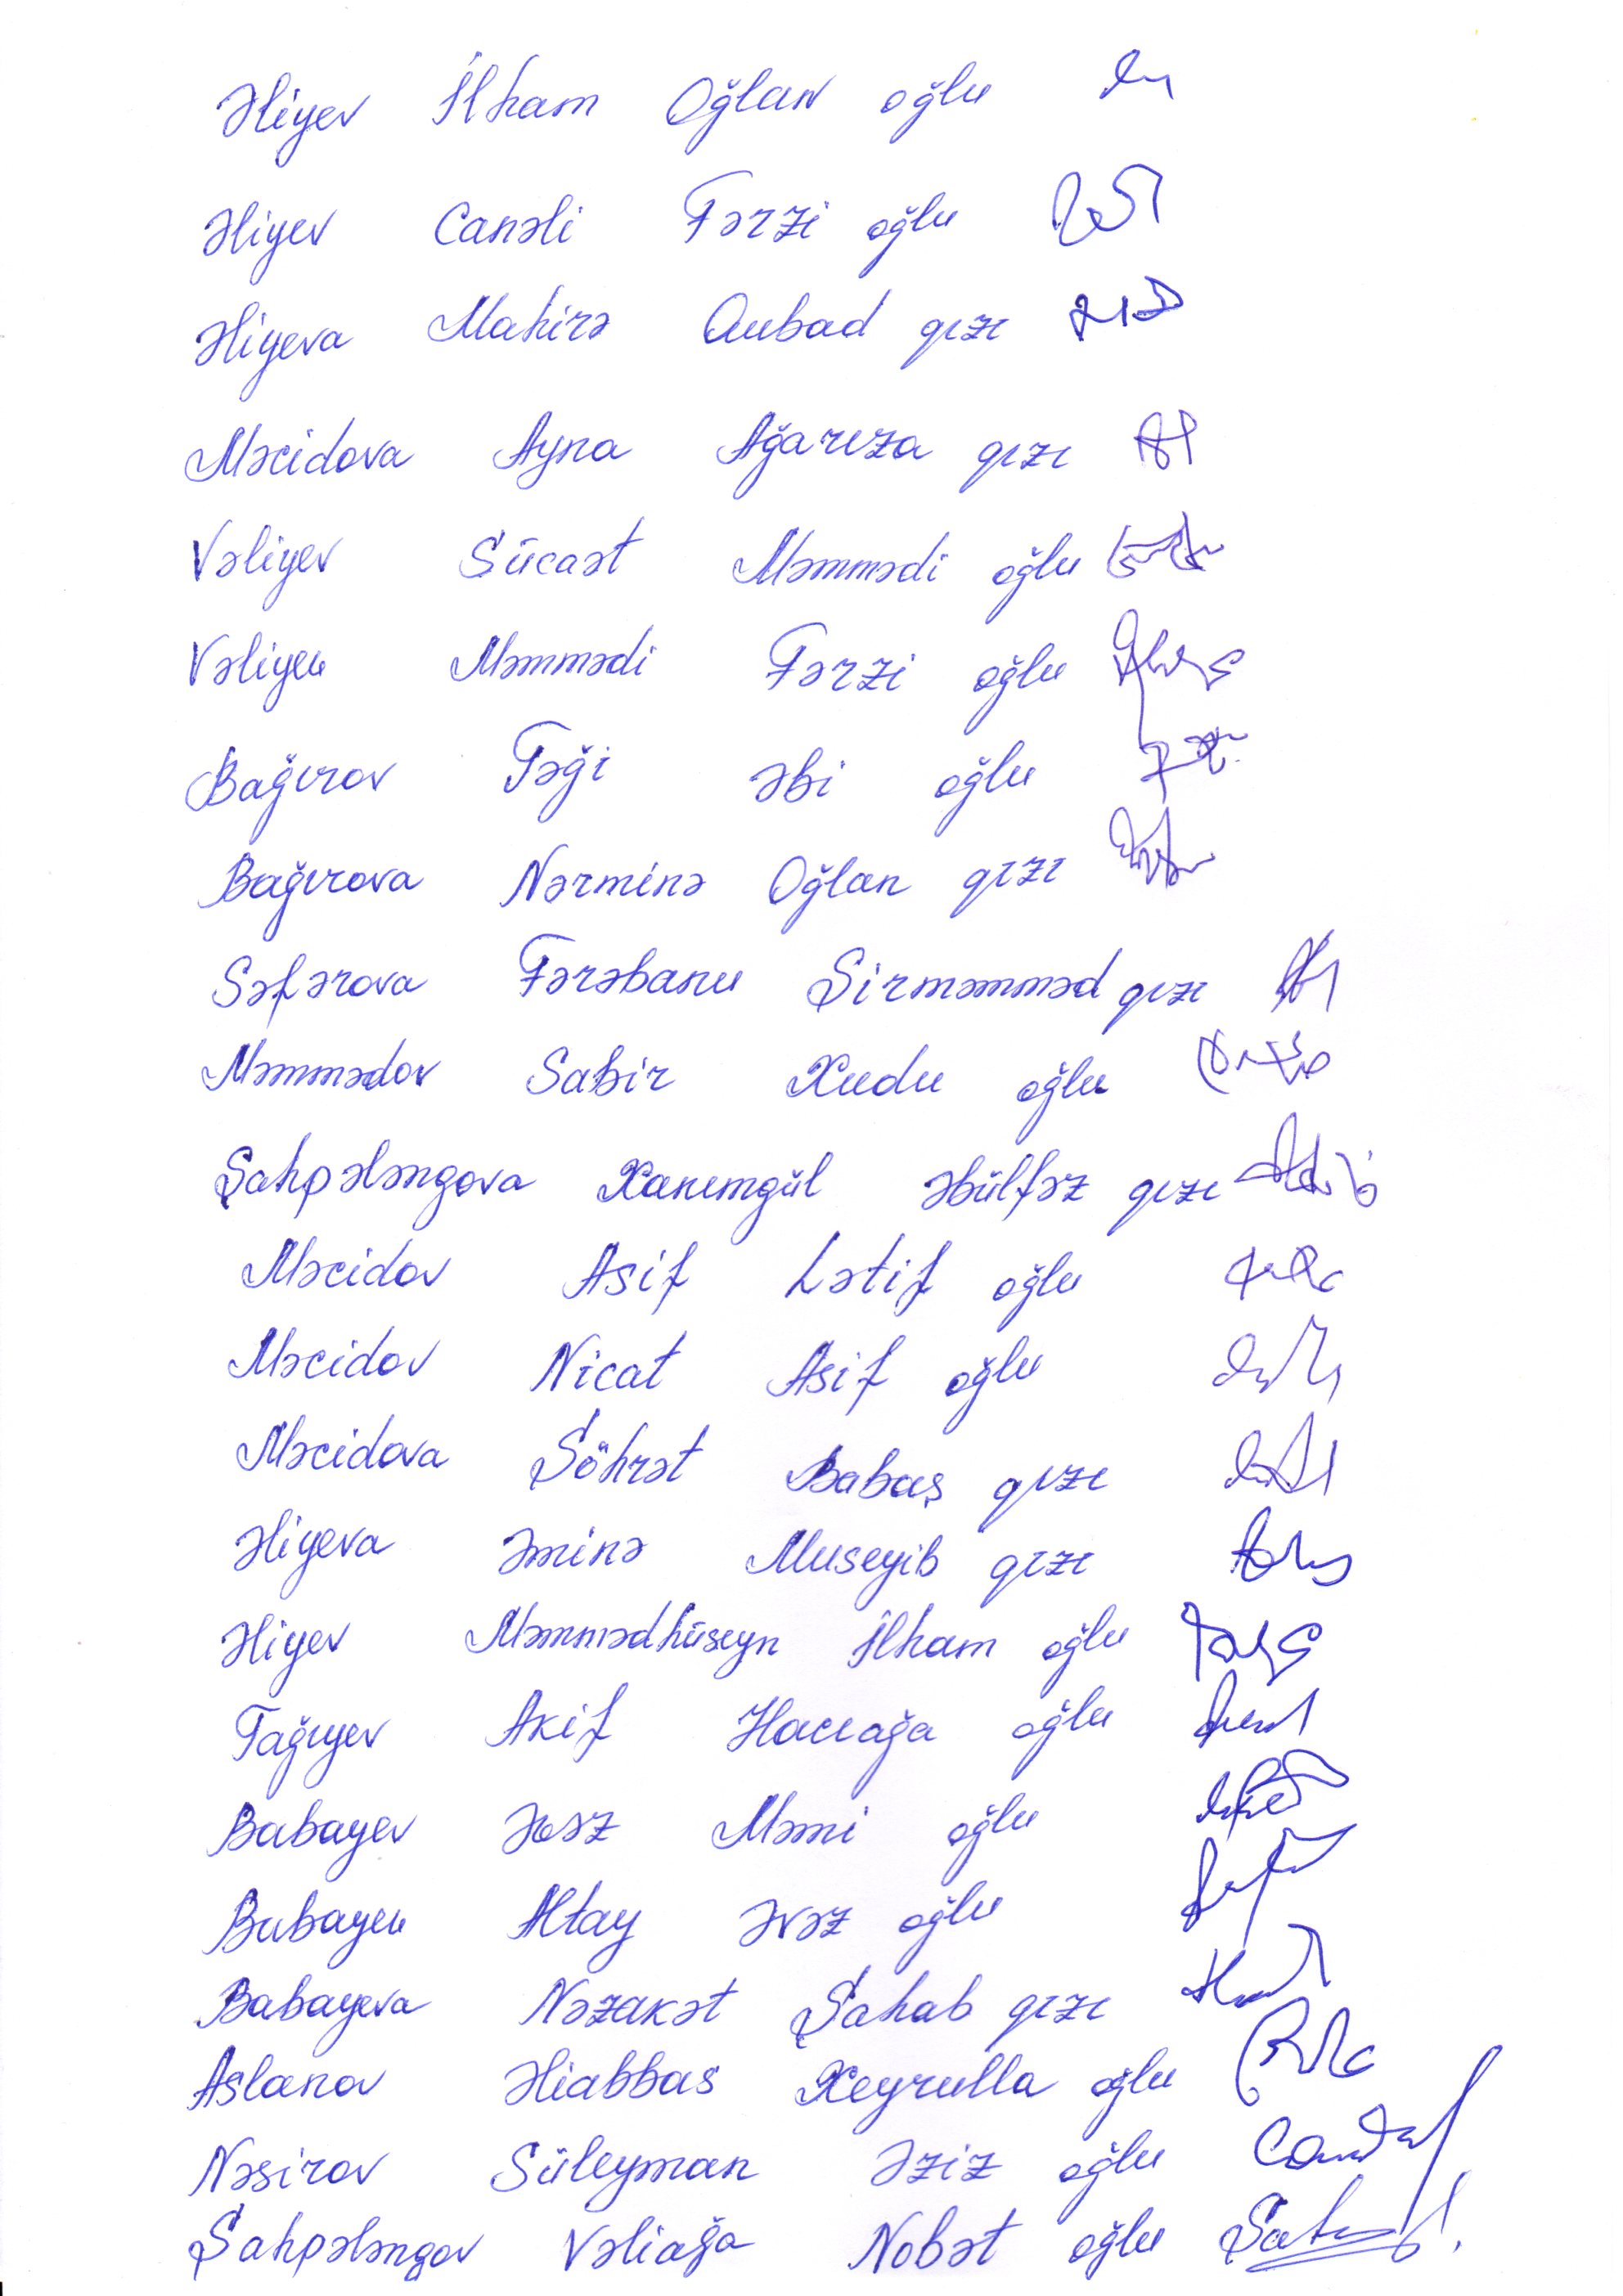 Əliyev İlham Oğlan oğlu
Əliyev Canəli Fərzi oğlu
Əliyeva Mahirə Qubad qızı
Məcidova Ayna Ağarıza qızı
Vəliyev Sücaət Məmmədi oğlu
Vəliyev Məmmədi Fərzi oğlu
Bağırov Təği Əbi oğlu
Bağırova Nərminə Oğlan qızı
Səfərova Fərəbanu Şirməmməd qızı
Məmmədov Sabir Xudu oğlu
Şahpələngova Xanımgül Əbülfəz qızı
Məcidov Asif Lətif oğlu
Məcidov Nicat Asif oğlu
Məcidova Şöhrət Babaş qızı
Əliyeva Əminə Museyib qızı
Əliyev Məmmədhüseyn İlham oğlu
Tağıyev Akif Hacıağa oğlu
Babayev Əvəz Məmi oğlu
Babayev Altay Əvəz oğlu
Babayeva Nəzakət Şahab qızı
Aslanov Əliabbas Xeyrulla oğlu
Nəsirov Süleyman Əziz oğlu
Şahpələngov Vəliağa Nobət oğlu